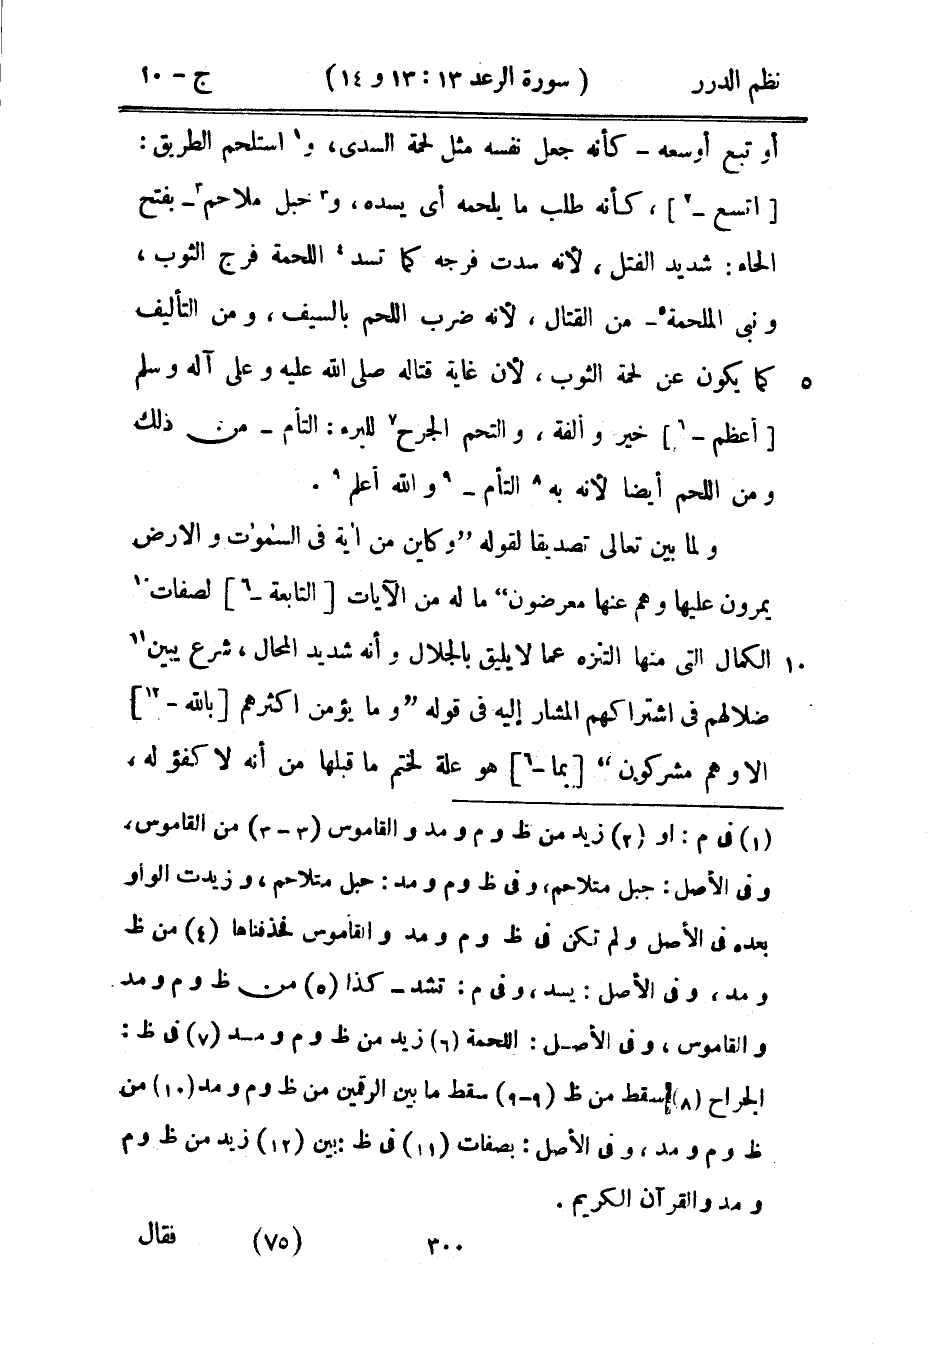 نظم الدرر ( سورة الرعد ١٣ : ١٣ و ١٤ ) ج – ١٠
أو تبع أوسعه – كأنه جعل نفسه مثل لحمة السدى، و١ استلحم الطريق :
[ اتسع –٢ ] ، كأنه طلب ما يلحمه أى يسده، و٣ حبل ملاحم٣– بفتح
الحاء : شديد الفتل ، لأنه سدت فرجه كما تسد٤ اللحمة فرج الثوب ،
و نبى الملحمة٥– من القتال ، لأنه ضرب اللحم بالسيف ، و من التأليف
٥ كما يكون عن لحمة الثوب ، لأن غاية قتاله صلى الله عليه و على آله و سلم
[ أعظم –٦ ] خير و ألفة ، و التحم الجرح٧ للبرء : التأم – من ذلك
و من اللحم أيضا لأنه به٨ التأم – ٩ و الله أعلم ٩ .
و لما بين تعالى تصديقا لقوله ”وكاين من اٰية فى السمٰوٰت و الارض
يمرون عليها و هم عنها معرضون“ ما له من الآيات [ التابعة –٦ ] لصفات١٠
١٠ الكمال التى منها التنزه عما لا يليق بالجلال و أنه شديد المحال ، شرع يبين١١
ضلالهم فى اشتراكهم المشار إليه فى قوله ”و ما يؤمن اكثرهم [ بالله –١٢ ]
الا و هم مشركون “ [ بما –٦ ] هو علة لختم ما قبلها من أنه لا كفؤ له ،
(١) فى م : او (٢) زيد من ظ و م و مد و القاموس (٣–٣) من القاموس،
و فى الأصل : جبل متلاحم، و فى ظ و م و مد : حبل متلاحم ، و زيدت الواو
بعده فى الأصل و لم تكن فى ظ و م و مد و القاموس فحذفناها (٤) من ظ
و مد ، و فى الأصل : يسد ، و فى م : تشد – كذا (٥) من ظ و م و مد
و القاموس ، و فى الأصل : اللحمة (٦) زيد من ظ و م و مد (٧) فى ظ :
الجراح (٨) سقط من ظ (٩–٩) سقط ما بين الرقمين من ظ و م و مد (١٠) من
ظ و م و مد ، و فى الأصل : بصفات (١١) فى ظ : بين (١٢) زيد من ظ و م
و مد و القرآن الكريم .
٣٠٠ (٧٥) فقال